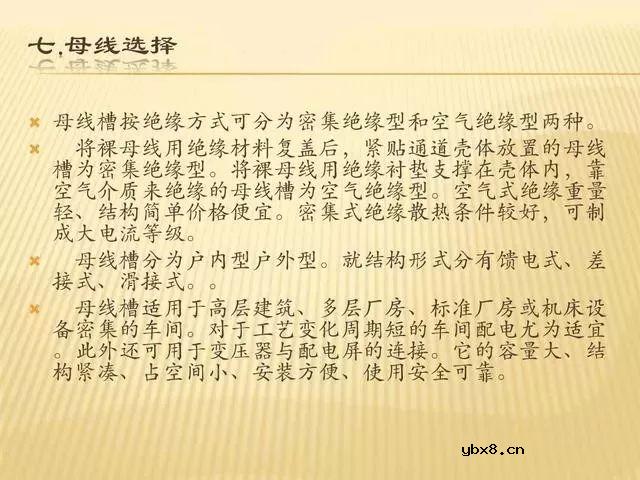 七.母线选择
母线槽按绝缘方式可分为密集绝缘型和空气绝缘型两种。
将裸母线用绝缘材料复盖后，紧贴通道壳体放置的母线
槽为密集绝缘型。将裸母线用绝缘衬垫支撑在壳体内，靠
空气介质来绝缘的母线槽为空气绝缘型。空气式绝缘重量
轻、结构简单价格便宜。密集式绝缘散热条件较好，可制
成大电流等级。
母线槽分为户内型户外型。就结构形式分有馈电式、差
接式、滑接式。。
母线槽适用于高层建筑、多层厂房、标准厂房或机床设
备密集的车间。对于工艺变化周期短的车间配电尤为适宜
。此外还可用于变压器与配电屏的连接。它的容量大、结
构紧凑、占空间小、安装方便、使用安全可靠。
ybx8.cn